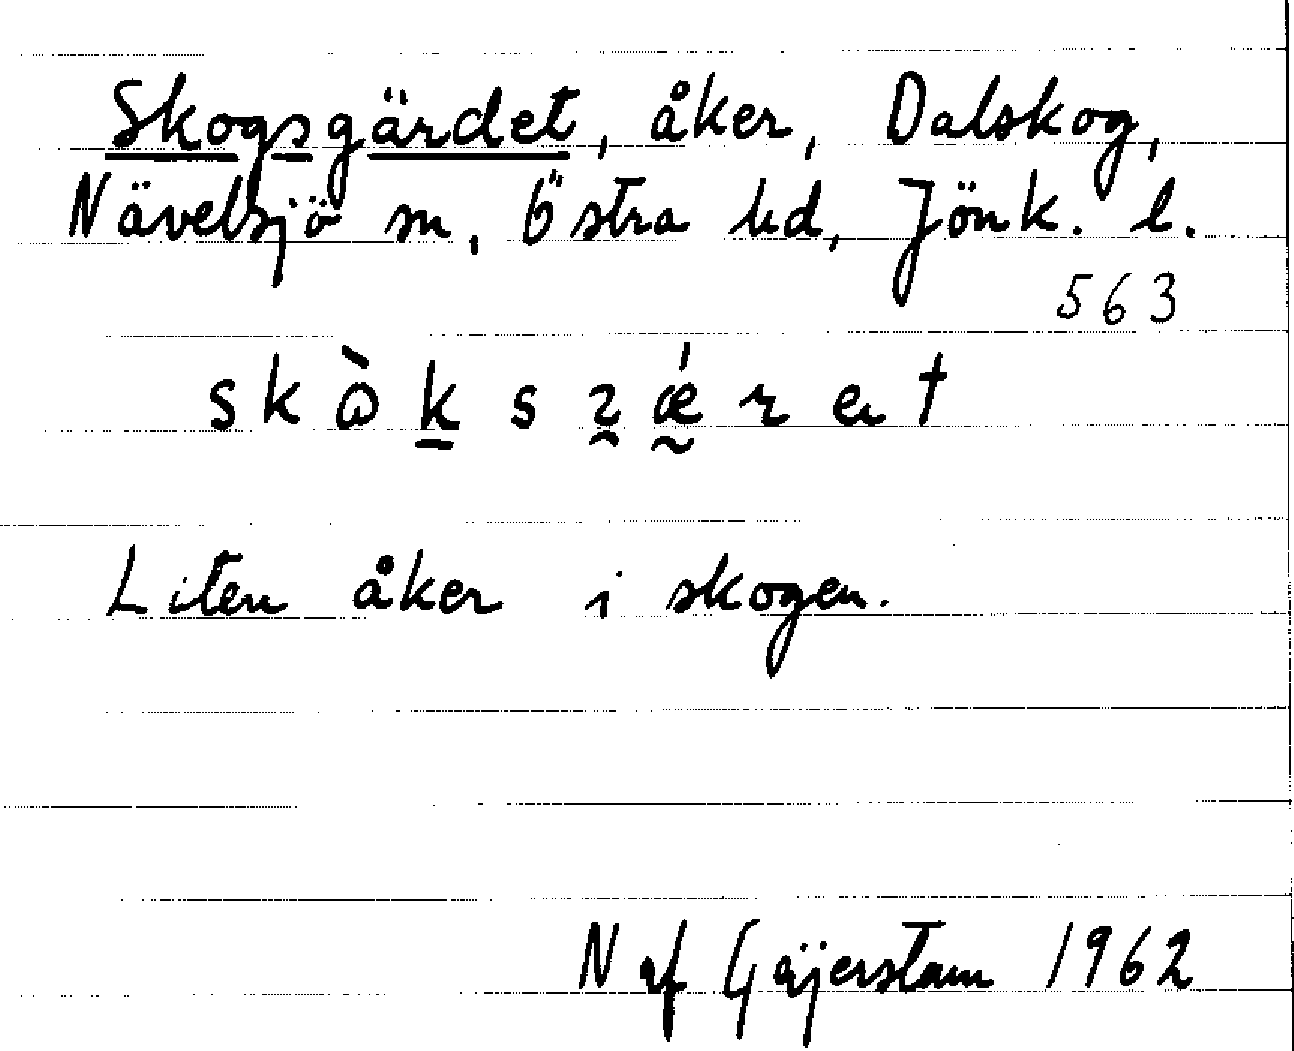 Skogsgärdet, åker, Dalskog,
Nävelsjö sn, Östra hd, Jönk. l.
563
Liten åker i skogen.
N af Gäjerstam 1962